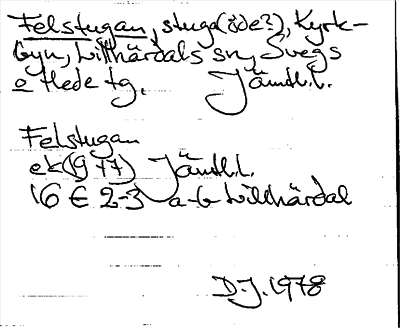 Felstugan, stuga (öde?), Kyrk-
byn, Lillhärdals sn, Svegs
o Hede tg. Jämtl.l.
Felstugan
ek(1977) Jämtl.L.
16 E 2-3 a-b Lillhärdal
D.J. 1978